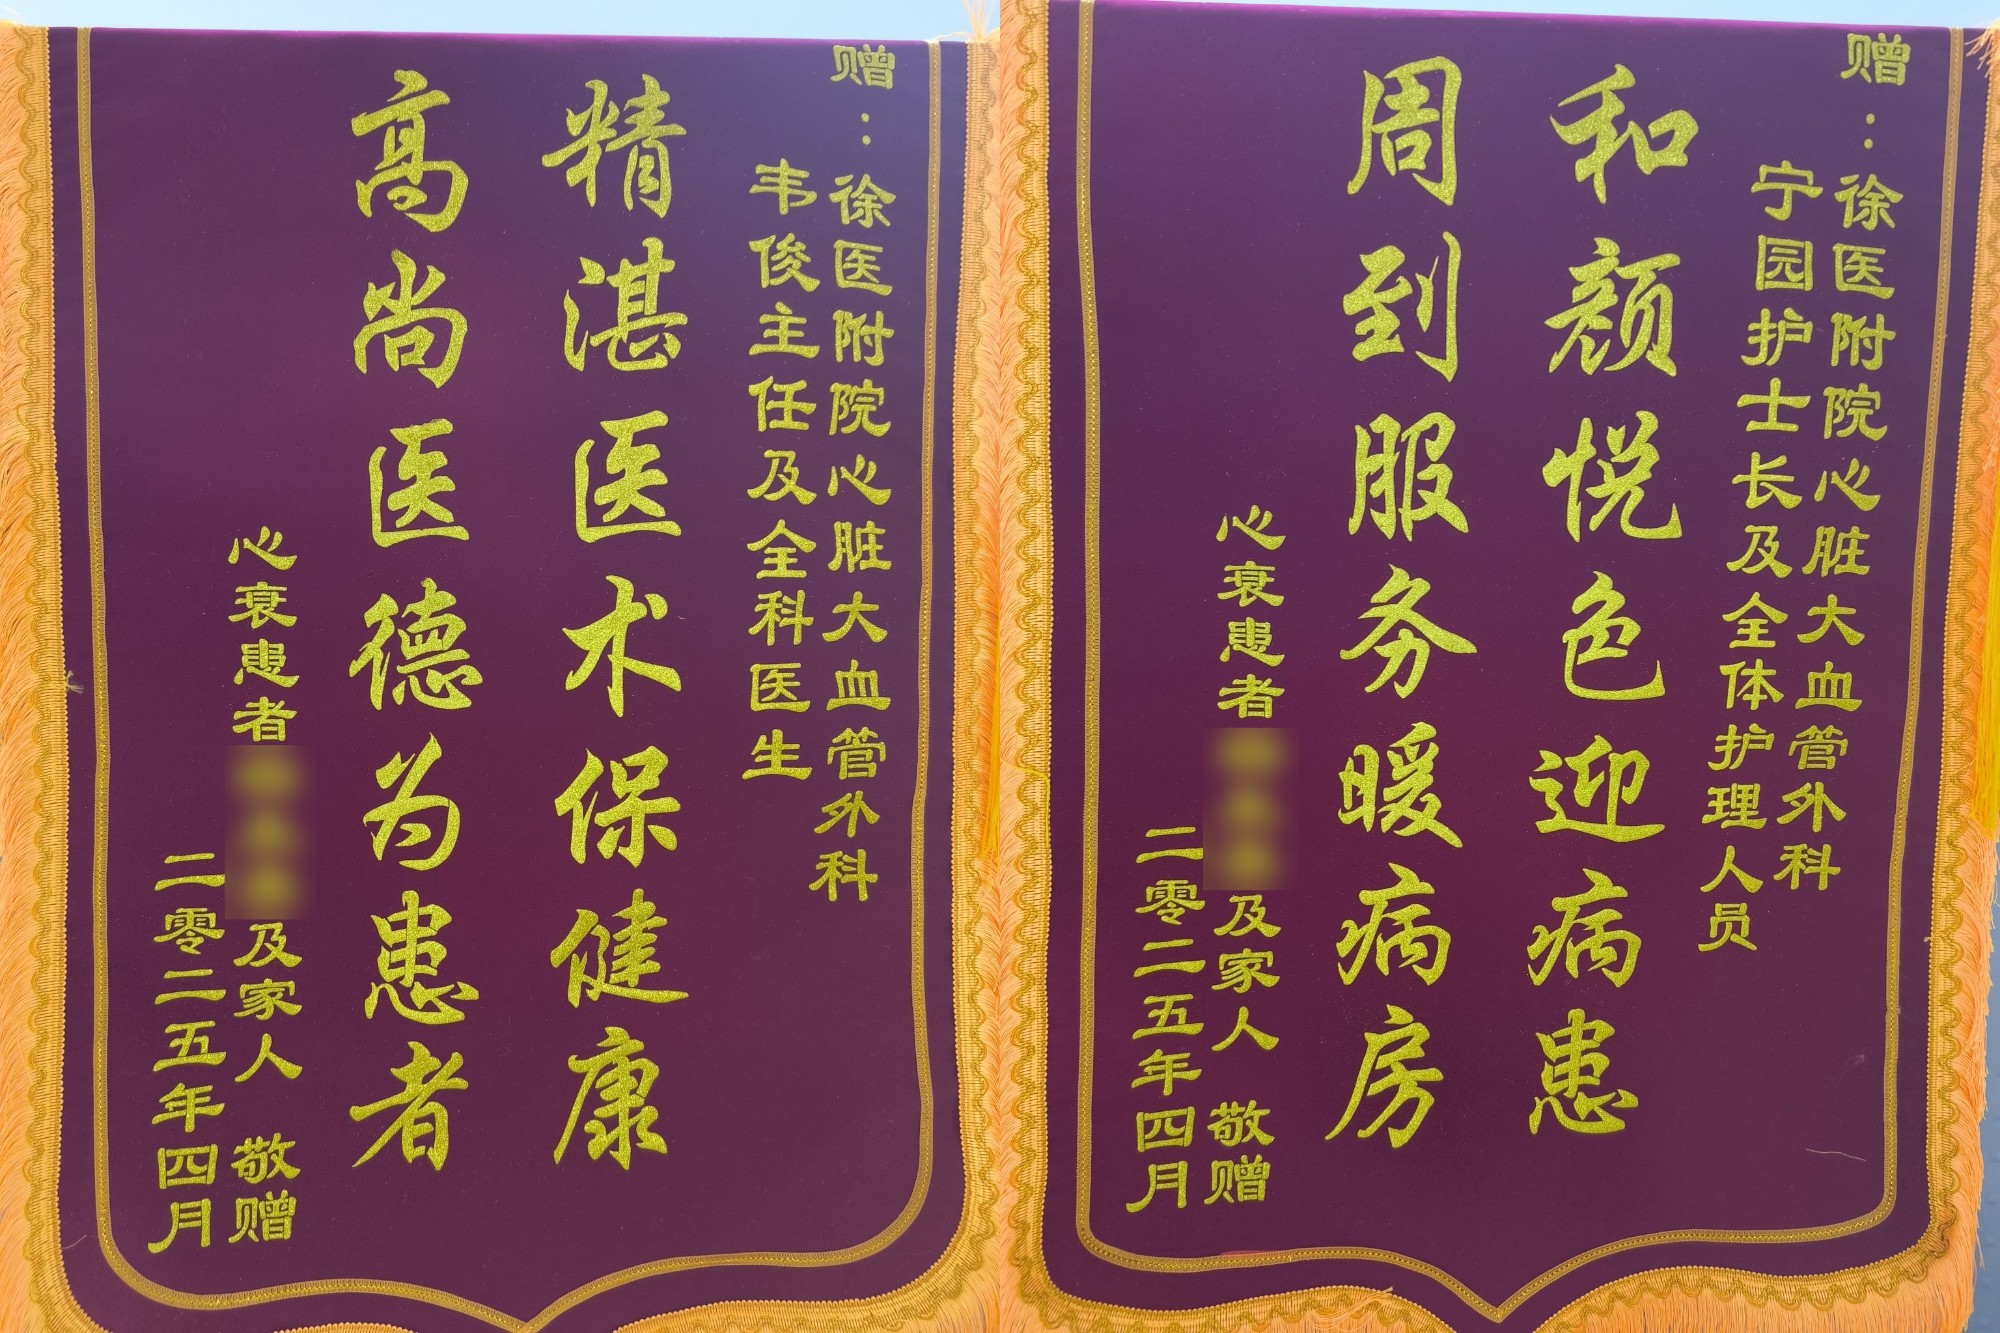 赠：徐医附院心脏大血管外科
韦俊主任及全科医生
精湛医术保健康
高尚医德为患者
心衰患者
及家人 敬赠
二零二五年四月
赠：徐医附院心脏大血管外科
宁园护士长及全体护理人员
和颜悦色迎病患
周到服务暖病房
心衰患者
及家人 敬赠
二零二五年四月